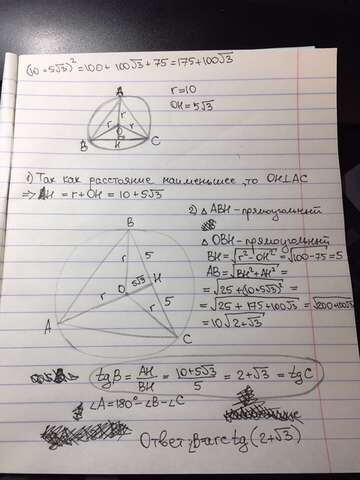 (10 + 5√3)² = 100 + 100√3 + 75 = 175 + 100√3
A
r
r
r
O
B
H
C
r = 10
OH = 5√3
1) Так как расстояние наименьшее, то OH⊥AC
⇒ AH = r + OH = 10 + 5√3
B
r
5
5√3
H
O
r
5
A
C
2) △ ABH - прямоугольный
△ OBH - прямоугольный
BH = √r² - OH² = √100 - 75 = 5
AB = √BH² + AH² =
= √25 + (10 + 5√3)² =
= √25 + 175 + 100√3 = √200 + 100√3
= 10√2 + √3
tg B = AH/BH = 10 + 5√3/5 = 2 + √3 = tg C
∠A = 180° - ∠B - ∠C
Ответ: B = arc tg (2 + √3)